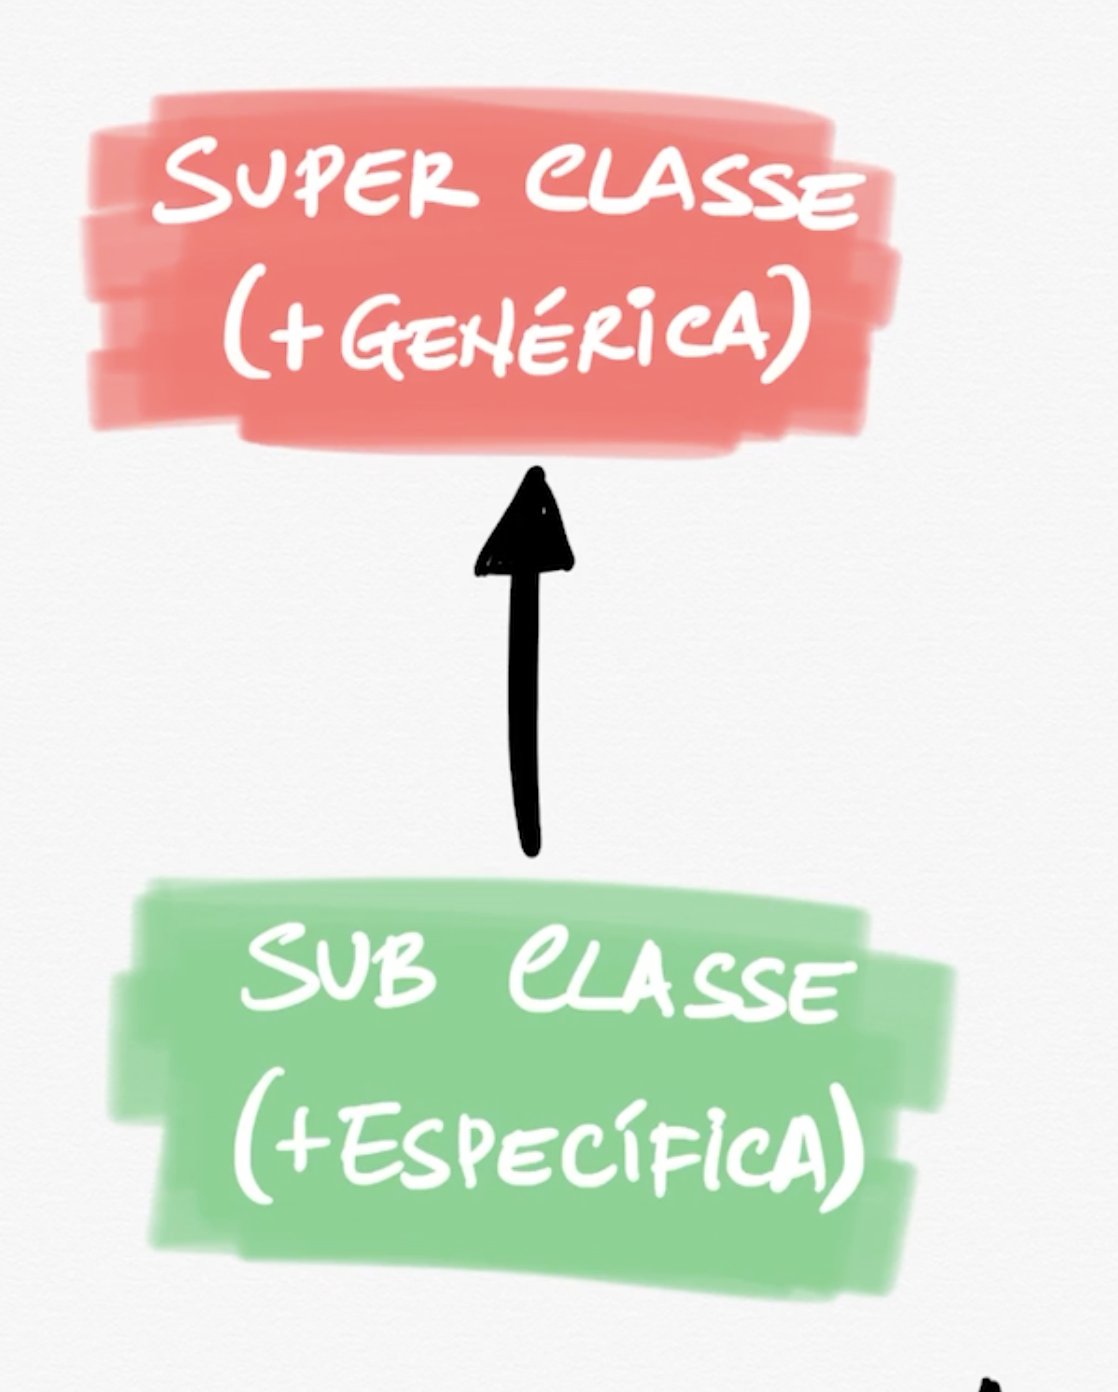 SUPER CLASSE
(+GENÉRICA)
SUB CLASSE
(+ESPECÍFICA)